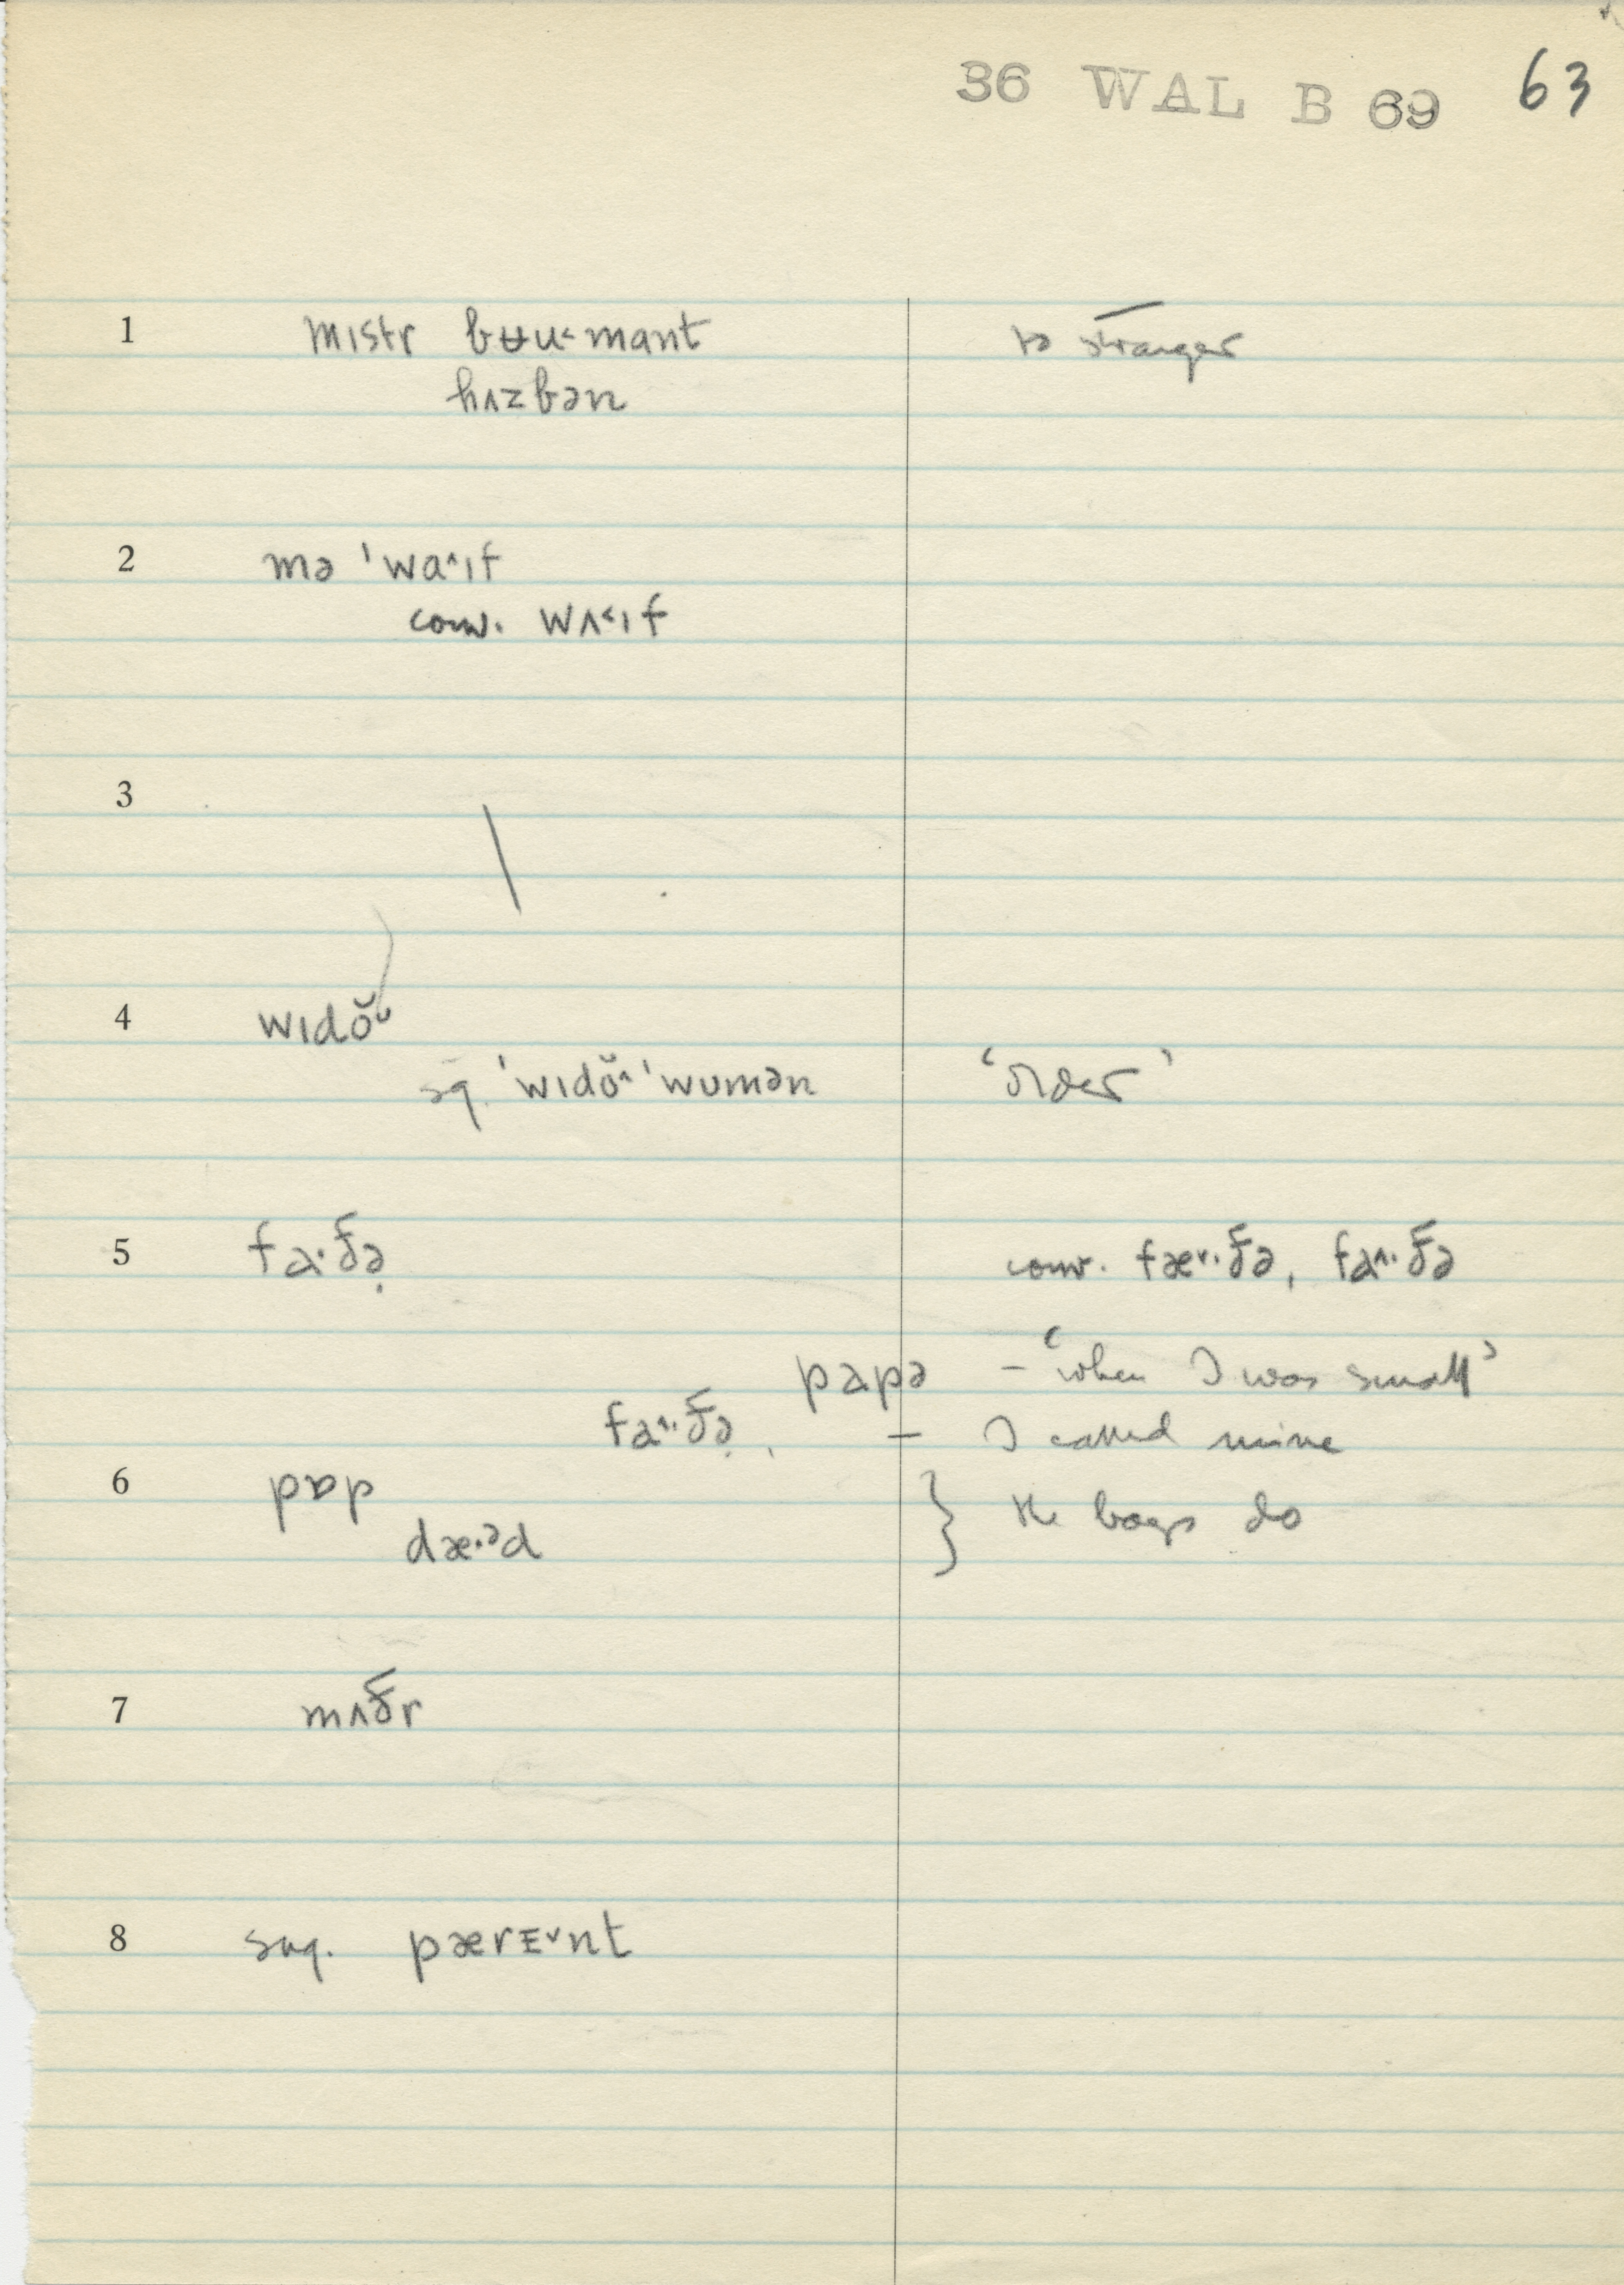 36 WAL B 69 63
1 mɪstr bʉu˂mant to stranger
hʌzbən
2 mə ˈwɑ˄ɪf
conv. wʌ˂ɪf
3 \
4 wɪdŏᶷ
sg. ˈwɪdŏ˄ ˈwumən ‘older’
5 fa·ðə̣ conv. fæ˅·ðə, fa˄·ðə
papə – ‘when I was small’
fa˄·ðə̣, – I called mine
6 pɒp } the boys do
dæ·ᵊd
7 mʌðr
8 sug. pærᴇ˅nt